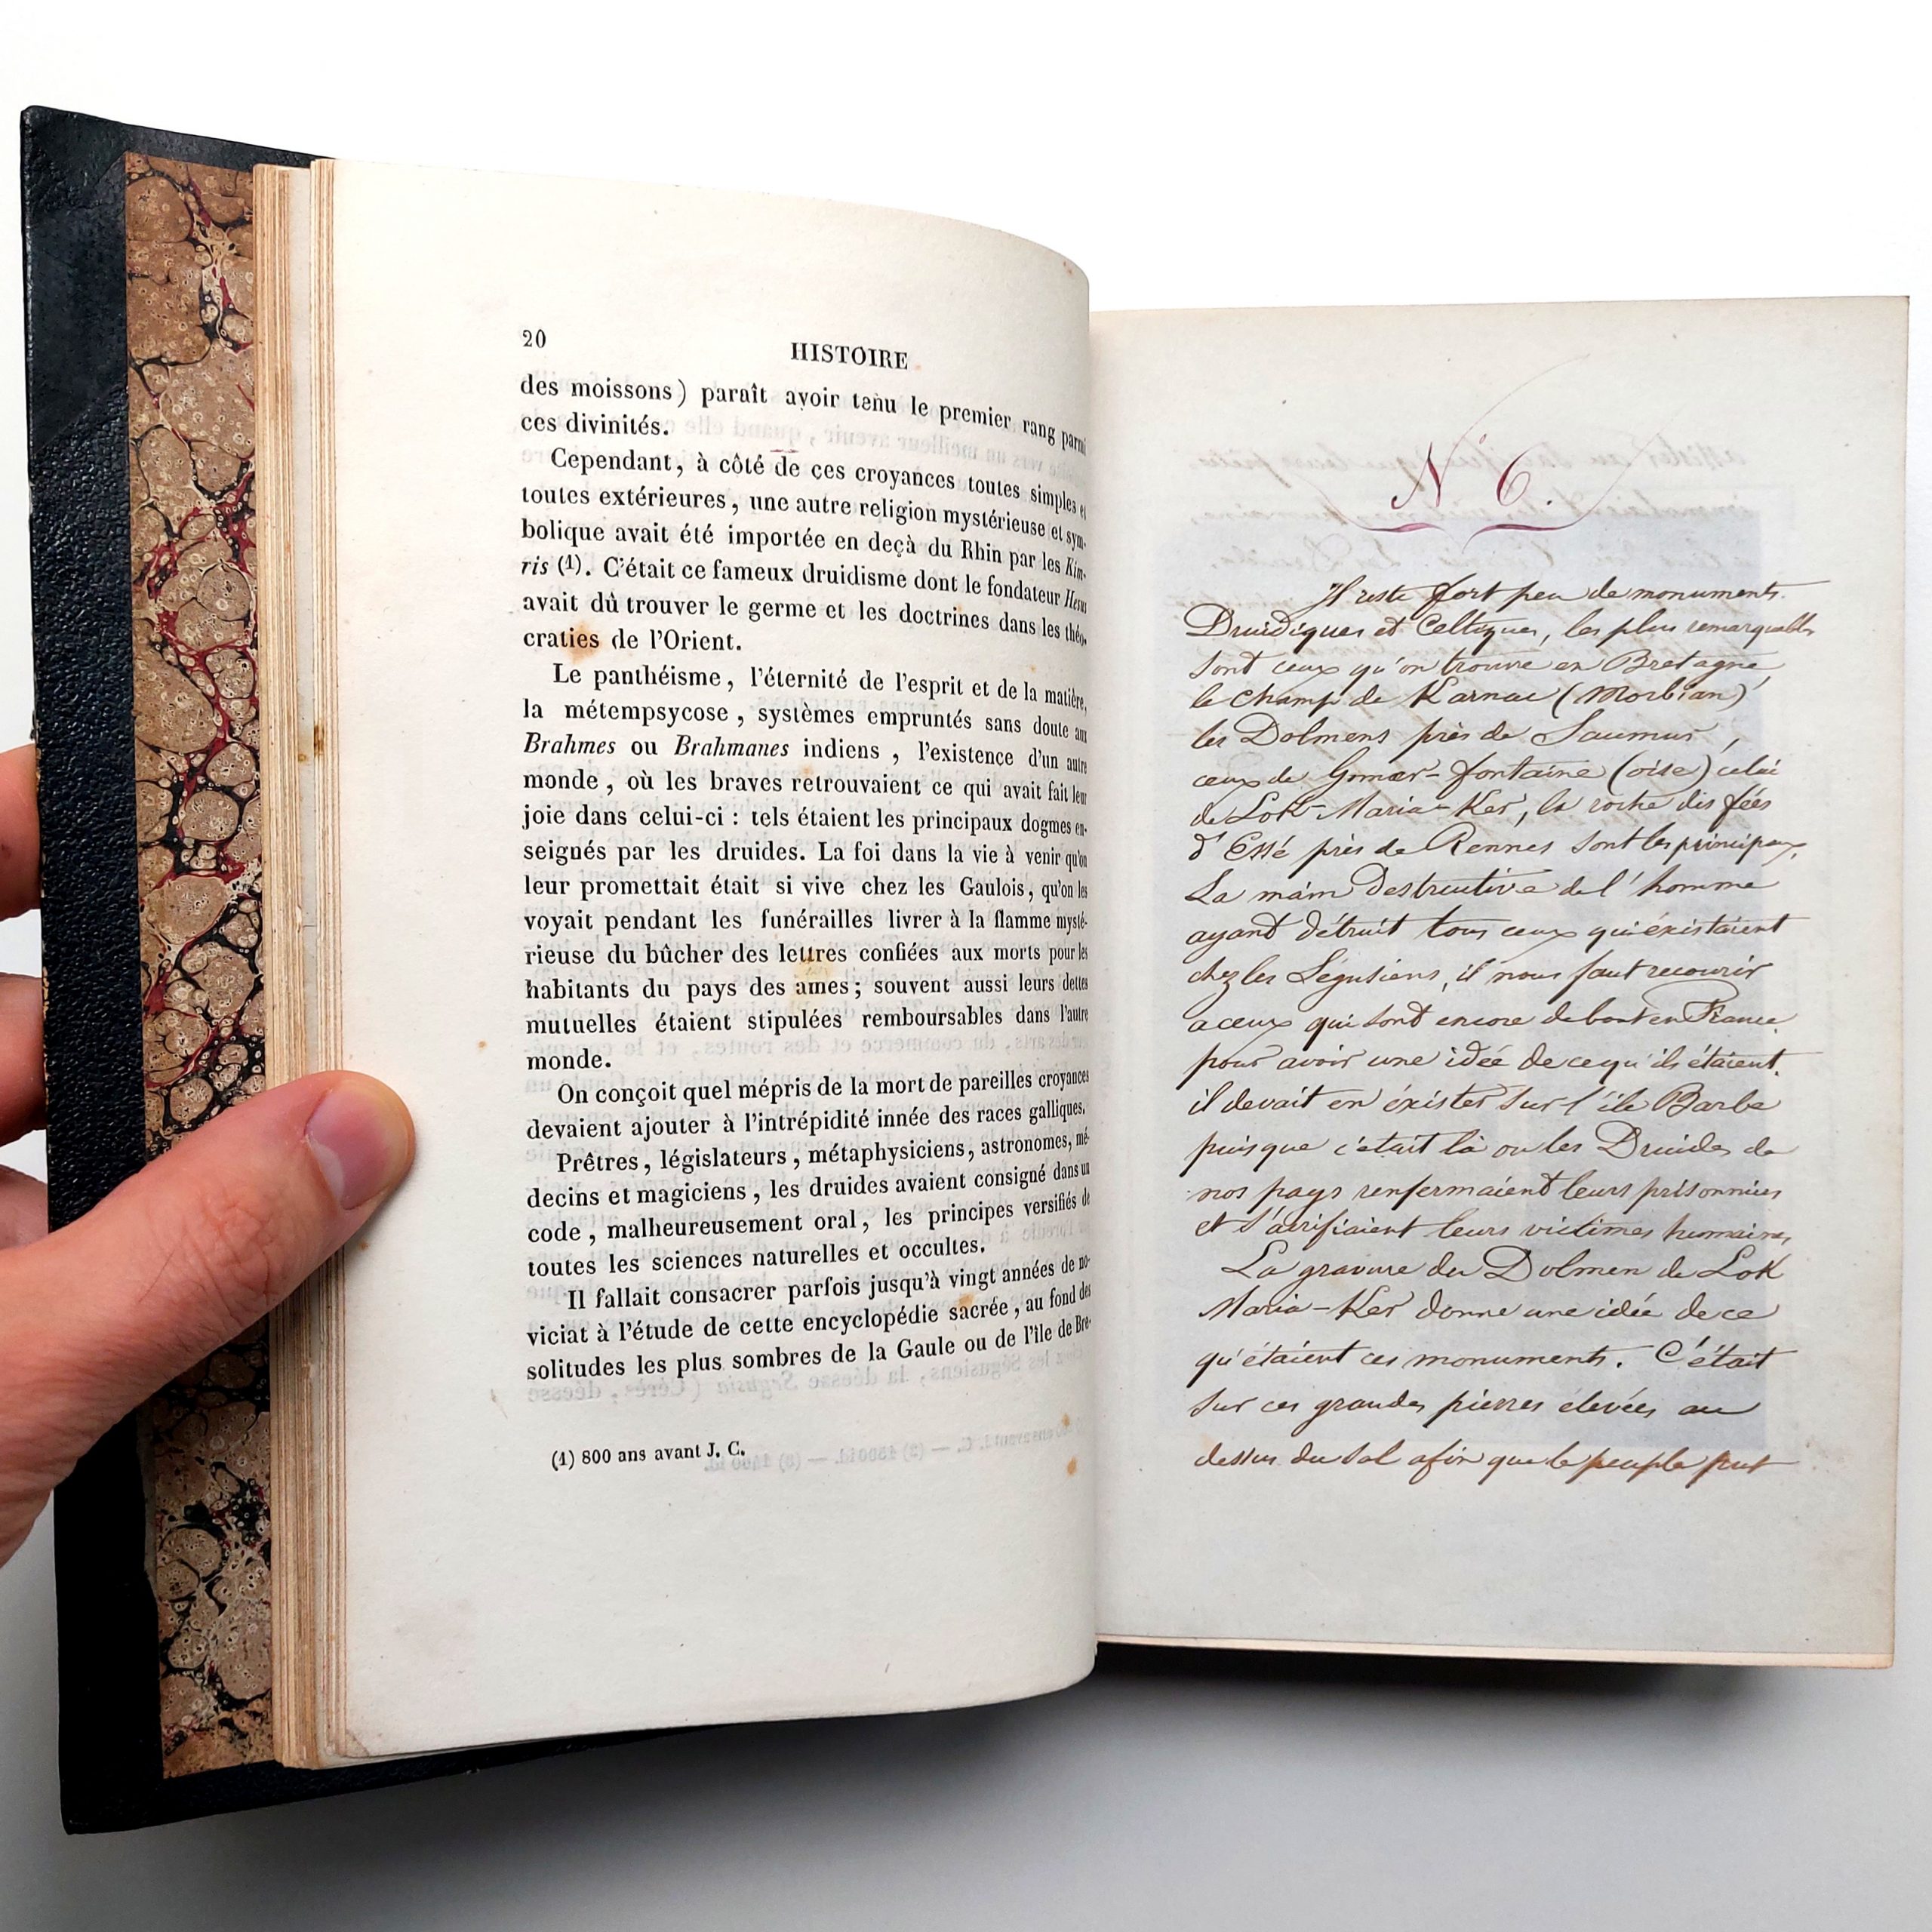 20
HISTOIRE
des moissons) paraît avoir tenu le premier rang parmi
ces divinités.
Cependant, à côté de ces croyances toutes simples et
toutes extérieures, une autre religion mystérieuse et sym-
bolique avait été importée en deçà du Rhin par les Kim-
ris (1). C'était ce fameux druidisme dont le fondateur Hesus
avait dû trouver le germe et les doctrines dans les théo-
craties de l'Orient.
Le panthéisme, l'éternité de l'esprit et de la matière,
la métempsycose, systèmes empruntés sans doute aux
Brahmes ou Brahmanes indiens, l'existence d'un autre
monde, où les braves retrouvaient ce qui avait fait leur
joie dans celui-ci : tels étaient les principaux dogmes en-
seignés par les druides. La foi dans la vie à venir qu'on
leur promettait était si vive chez les Gaulois, qu'on les
voyait pendant les funérailles livrer à la flamme mysté-
rieuse du bûcher des lettres confiées aux morts pour les
habitants du pays des ames; souvent aussi leurs dettes
mutuelles étaient stipulées remboursables dans l'autre
monde.
On conçoit quel mépris de la mort de pareilles croyances
devaient ajouter à l'intrépidité innée des races galliques.
Prêtres, législateurs, métaphysiciens, astronomes, mé-
decins et magiciens, les druides avaient consigné dans un
code, malheureusement oral, les principes versifiés de
toutes les sciences naturelles et occultes.
Il fallait consacrer parfois jusqu'à vingt années de no-
viciat à l'étude de cette encyclopédie sacrée, au fond des
solitudes les plus sombres de la Gaule ou de l'île de Bre-
(1) 800 ans avant J. C.
N° 6.
Il reste fort peu de monuments
Druidiques et Celtiques, les plus remarquables
sont ceux qu'on trouve en Bretagne,
le champ de Karnac (Morbian)
les Dolmens près de Saumur,
ceux de Gomer-fontaine (oise) celui
de Lok-Maria-Ker, la roche des fées
d'Essé près de Rennes sont les principaux.
La main Destructive de l'homme
ayant détruit tous ceux qui éxistaient
chez les Ségusiens, il nous faut recourir
a ceux qui sont encore debout en France
pour avoir une idée de ce qu'ils étaient.
il devait en éxister sur l'ile Barbe
puisque c'était là ou les Druides de
nos pays renfermaient leurs prisonniers
et sacrifiaient leurs victimes humaines
La gravure du Dolmen de Lok
Maria-Ker donne une idée de ce
qu'étaient ces monuments. C'était
sur ces grandes pierres élevées au
dessus du sol afin que le peuple put